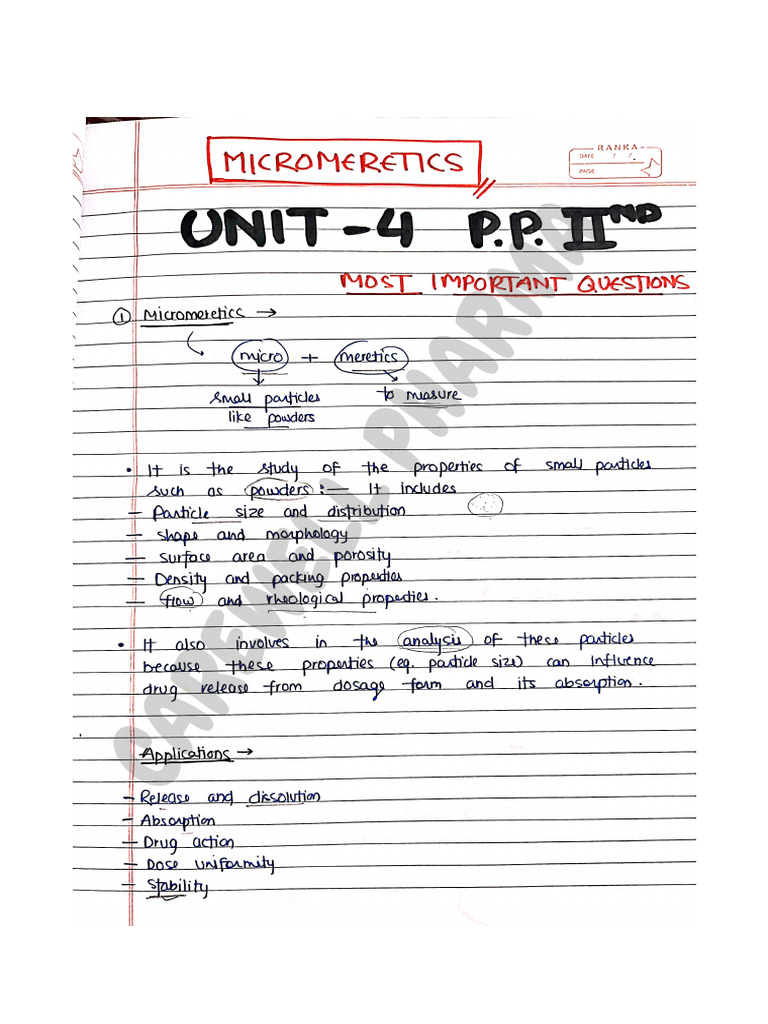 MICROMERETICS
RANKA
DATE / /
PAGE
UNIT-4 P.P. IIND
MOST IMPORTANT QUESTIONS
① Micromeretics →
micro + meretics
small particles to measure
like powders
• It is the study of the properties of small particles
such as powders :— It includes
— Particle size and distribution
— shape and morphology
— surface area and porosity
— Density and packing properties
— flow and rheological properties.
• It also involves in the analysis of these particles
because these properties (eg. particle size) can influence
drug release from dosage form and its absorption.
Applications →
— Release and dissolution
— Absorption
— Drug action
— Dose uniformity
— Stability
CAREWELL PHARMA